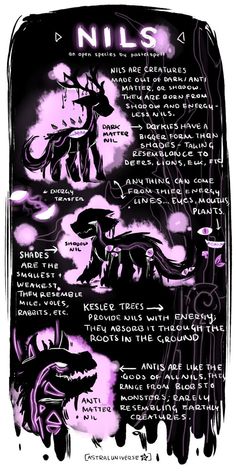 NILS
an open species by pastelspott
NILS ARE CREATURES
MADE OUT OF DARK/ANTI
MATTER, OR SHADOW.
THEY ARE BORN FROM
SHADOW AND ENERGY-
LESS NILS.
DARK
MATTER
NIL
DARKIES HAVE A
BIGGER FORM THAN
SHADES - TAKING
RESEMBLANCE TO
DEERS, LIONS, EMU, ETC
ENERGY
TRANSFER
ANYTHING CAN COME
FROM THIER ENERGY
LINES... EYES, MOUTHS,
PLANTS.
SHADOW
NIL
SHADES
ARE THE
SMALLEST +
WEAKEST.
THEY RESEMBLE
MICE, VOLES,
RABBITS, ETC.
KESLER TREES
PROVIDE NILS WITH ENERGY;
THEY ABSORB IT THROUGH THE
ROOTS IN THE GROUND
ANTI
MATTER
NIL
ANTIS ARE LIKE THE
GODS OF ALL NILS, THEY
RANGE FROM BLOBS TO
MONSTERS, RARELY
RESEMBLING EARTHLY
CREATURES.
[ASTRALUNIVERSE]